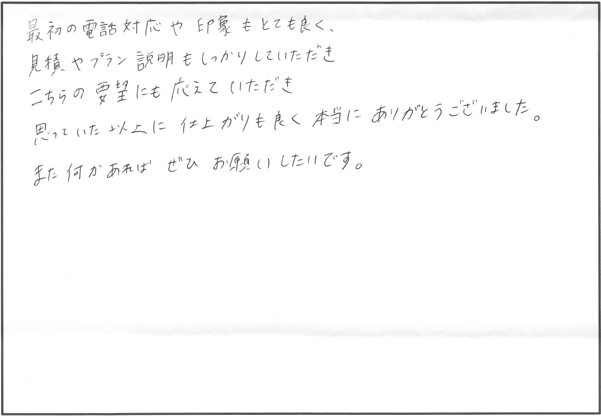 最初の電話対応や印象もとても良く、
見積やプラン説明もしっかりしていただき
こちらの要望にも応えていただき
思っていた以上に仕上がりも良く本当にありがとうございました。
また何かあればぜひお願いしたいです。